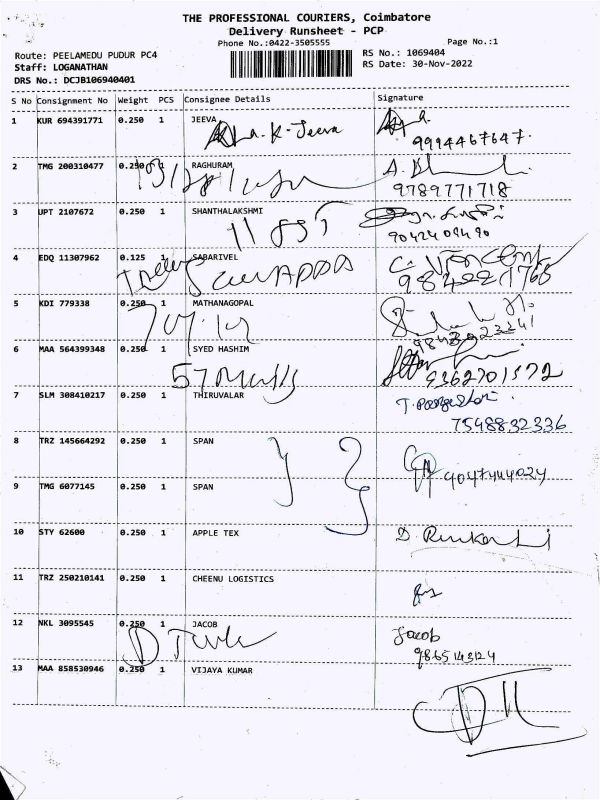 THE PROFESSIONAL COURIERS, Coimbatore
Delivery Runsheet - PCP
Phone No.:0422-3505555
Page No.:1
Route: PEELAMEDU PUDUR PC4
RS No.: 1069404
Staff: LOGANATHAN
RS Date: 30-Nov-2022
DRS No.: DCJB106940401
S No Consignment No Weight PCS Consignee Details Signature
1 KUR 694391771 0.250 1 JEEVA
A.K-Jeeva
9994467647.
2 TMG 200310477 0.250 1 RAGHURAM
9789771718
3 UPT 2107672 0.250 1 SHANTHALAKSHMI
9042409490
4 EDQ 11307962 0.125 1 SABARIVEL
5 KDI 779338 0.250 1 MATHANAGOPAL
6 MAA 564399348 0.250 1 SYED HASHIM
9362701572
7 SLM 308410217 0.250 1 THIRUVALAR
7548832336
8 TRZ 145664292 0.250 1 SPAN
9047444024
9 TMG 6077145 0.250 1 SPAN
10 STY 62600 0.250 1 APPLE TEX
11 TRZ 250210141 0.250 1 CHEENU LOGISTICS
12 NKL 3095545 0.250 1 JACOB
Jacob
9865143124
13 MAA 858530946 0.250 1 VIJAYA KUMAR